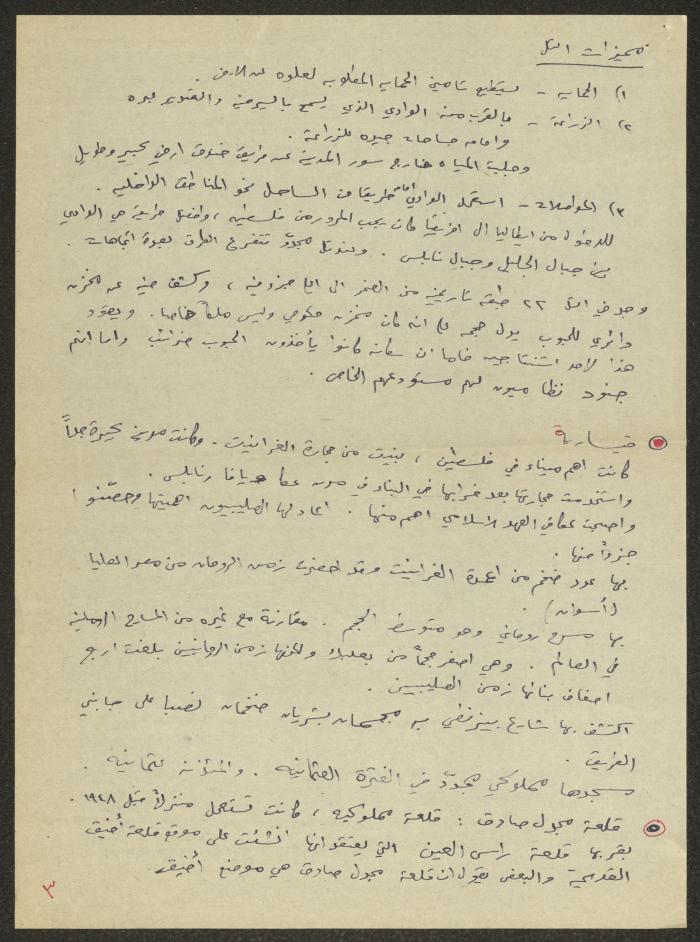 مميزات التل
١) الحمايه - يستطيع تأمين الحمايه المطلوبه لعلوه عن الارض .
٢) الزراعة - بالقرب منه الوادي الذي يسمح بال والقنوير بوده
وامامه مساحات جيده للزراعة .
وجلبت المياه خارج سور المدينة عن طريق خندق ارضي كبير وطويل
٣) المواصلات - استعمل الوادي طريقا من الساحل نحو المناطق الداخليه .
للدخول من ايطاليا الى افريقيا كان يجب المرور من فلسطين ، وافضل طريقة هي الوادي
بين جبال الجليل وجبال نابلس . وعند تل مجدّو تتفرع الطرق لعدة اتجاهات .
وجد في التل ٢٢ طبقة تاريخية من الصخر الى ، وكشف فيه عن مخزن
دائري للحبوب يدل حجمه على انه كان مخزن حكومي وليس ملكاً خاصا . ويعود
هذا لاحد استنتاجين فاما ان سكانه كانوا يأخذون الحبوب ضرائب واما انهم
جنود نظاميون لهم مستودعهم الخاص .
قيسارية
كانت اهم ميناء في فلسطين ، بنيت من حجارة الغرانيت . وكانت مدينة كبيرة جداً
واستخدمت حجارتها بعد خرابها في البناء في مدن عكا يافا ونابلس .
واصبحت عكا في العهد الاسلامي اهم منها . اعاد لها الصليبيون اهميتها وحصّنوا
جزءاً منها .
بها عدد ضخم من اعمدة الغرانيت وقد احضرت زمن الرومان من مصر العليا
( أسوان ) .
بها مسرح روماني وهو متوسط الحجم . مقارنة مع غيره من المسارح الرومانية
في العالم . وهي اصغر حجماً من بعلبك ولكنها زمن الرومانيين بلغت اربع
اضعاف بنائها زمن الصليبيين .
اكتشف بها شارع بيزنطي به مجسمان بشريان ضخمان نصبا على جانبي
الطريق .
مسجدها مملوكي مجدّد في الفترة العثمانيه . والمئذنه عثمانيه .
قلعة مجدل صادق : قلعة مملوكيه ، كانت تستعمل منزلاً قبل ١٩٤٨ .
بقربها قلعة راس العين التي يعتقد انها انشئت على موقع قلعة أفيق
القديمة والبعض يقول ان قلعة مجدل صادق هي موضع أفيق
٣